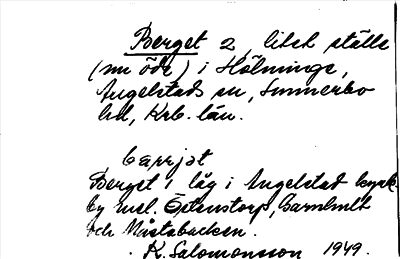 Berget 2, litet ställe
(nu öde) i Hölminge,
Angelstads sn, Sunnerbo
hd, Krb. län.
bærjət
Berget 1 låg i Angelstad kyrk-
by mel. Östenstorp, Gamlmlt
och Mistabacken.
K. Salomonsson 1949.